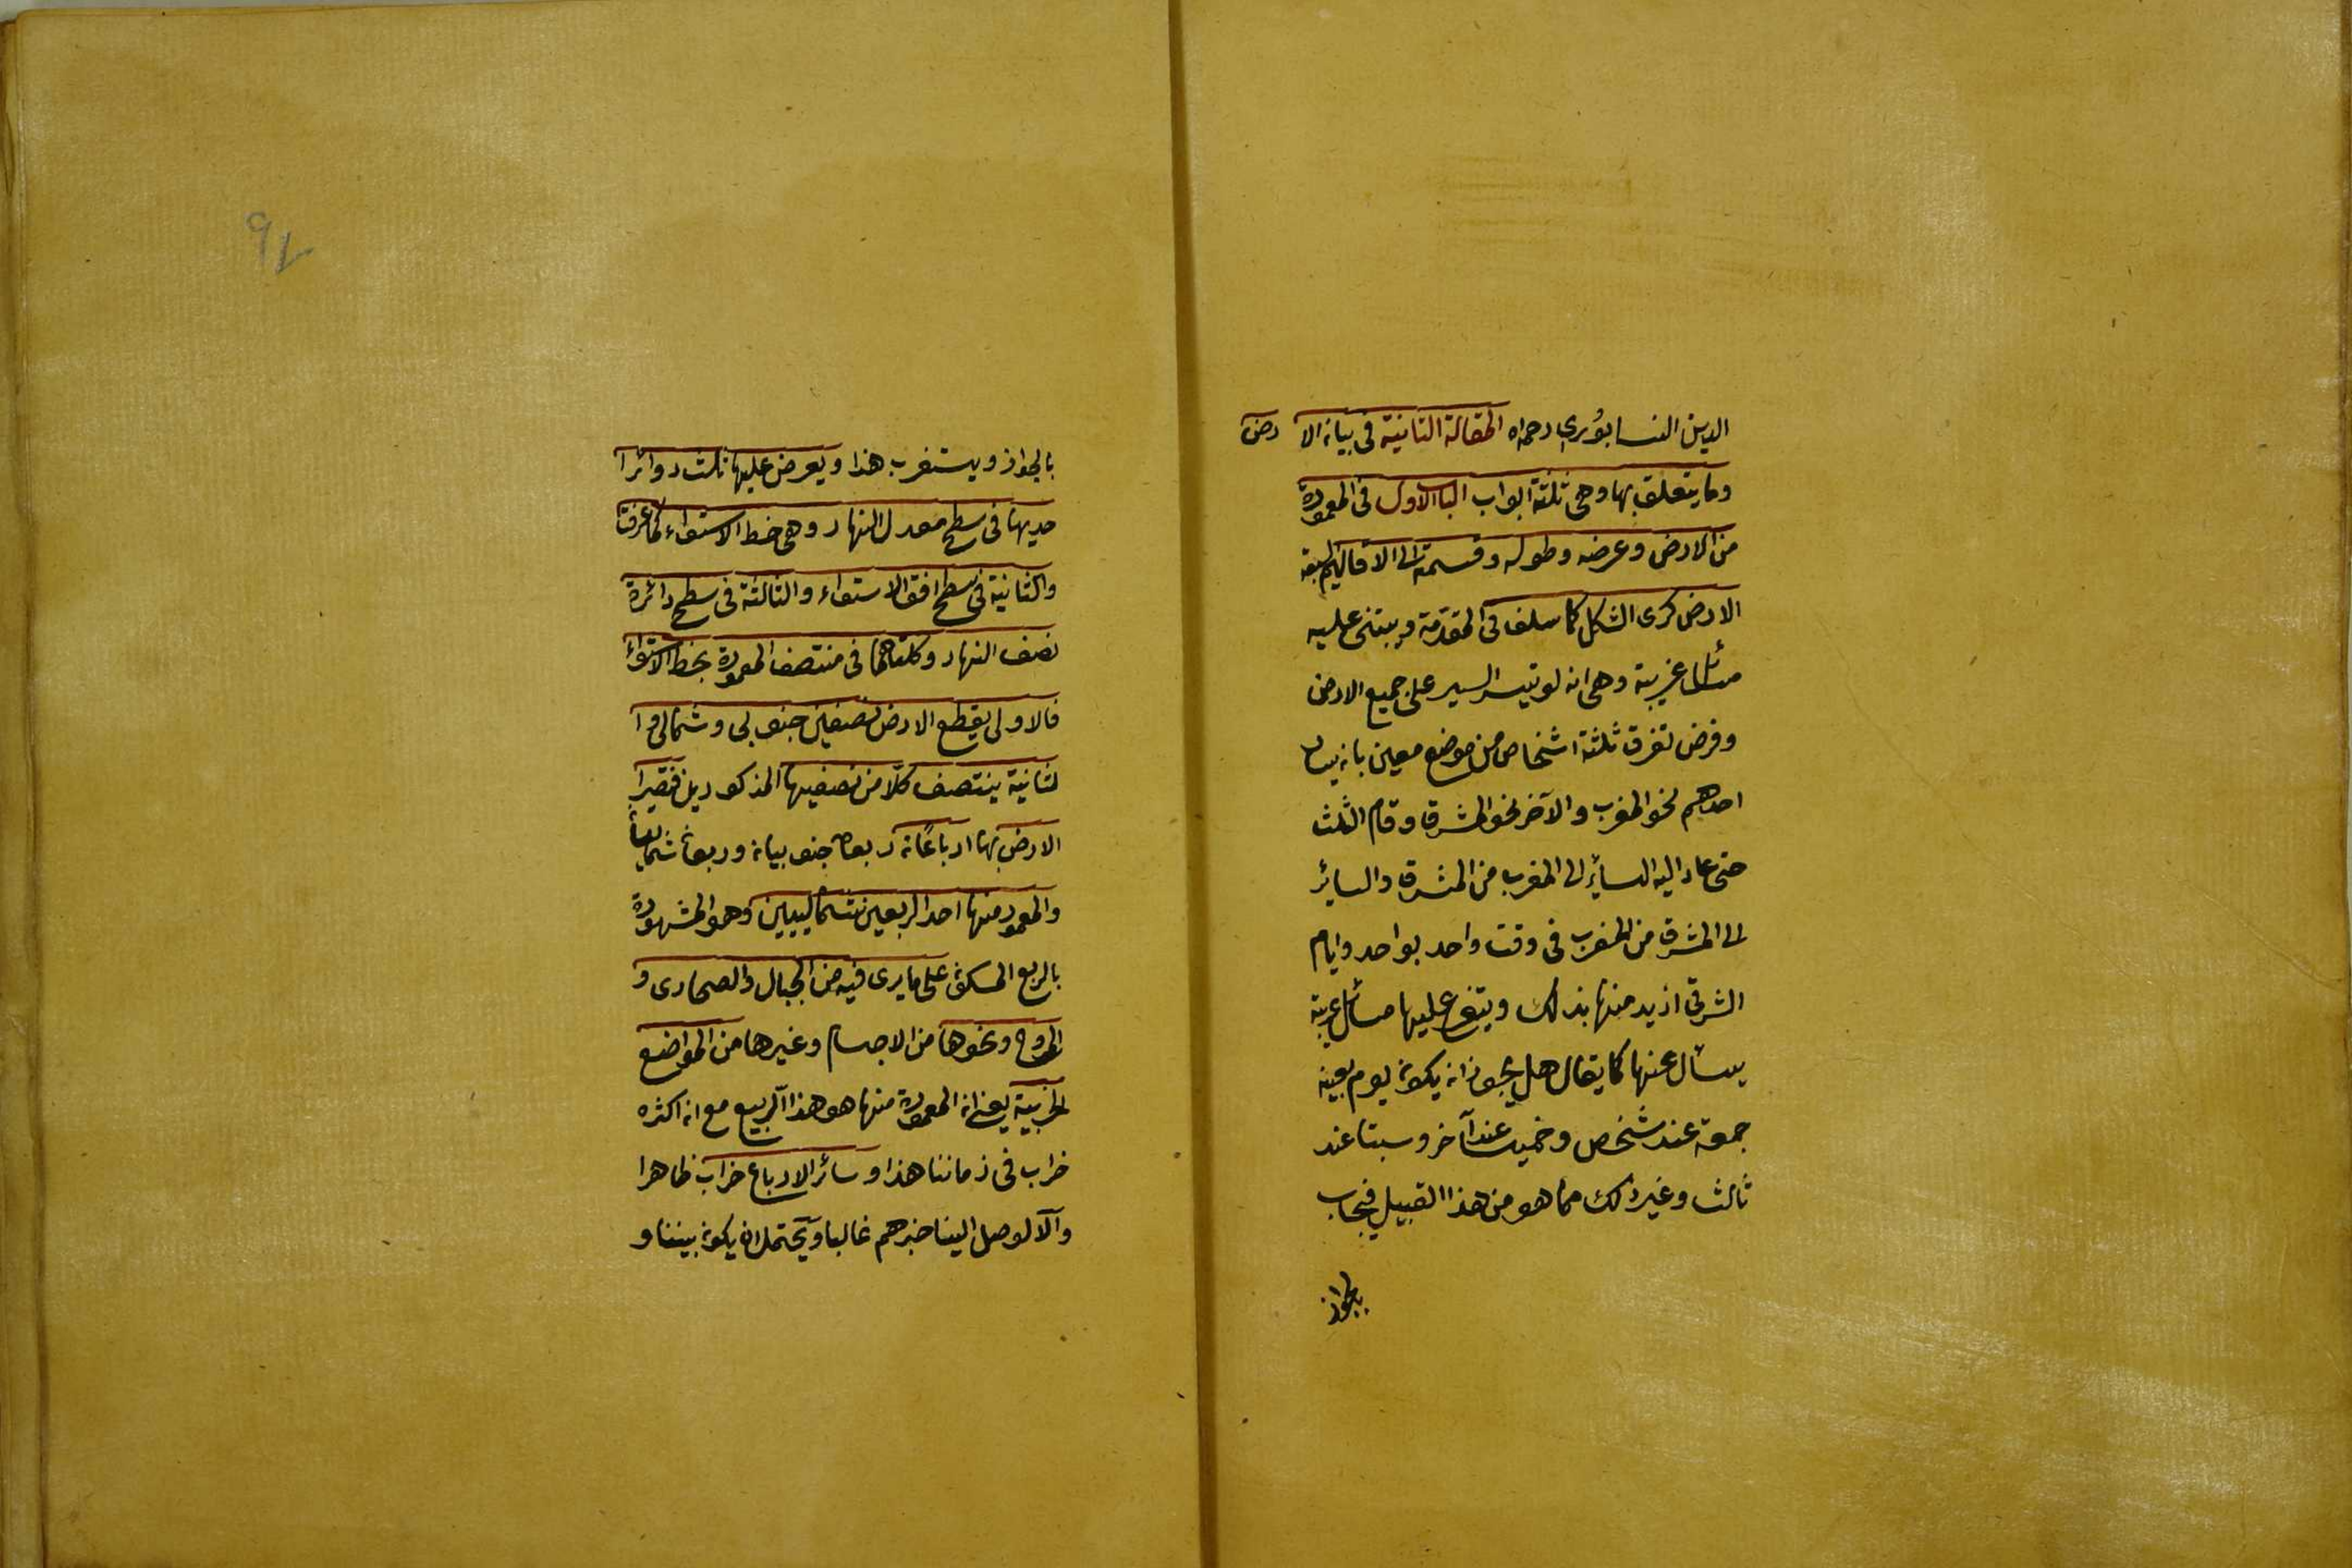 الدين النسابوري رحمه اه المقالة الثانية فى بيان الا رض
وما يتعلق بها وهى ثلثة ابواب الباب الاول فى المعمورة
من الارض وعرضه وطوله وقسمته الى الاقاليم السبعة
الارض كرى الشكل كما سلف فى المقدمة ويبتنى عليه
مسائل غريبة وهى انه لو تيسر السير على جميع الارض
وفرض تفرق ثلثة اشخاص من موضع معين بان يسار
احدهم نحو المغرب والآخر نحو المشرق وقام الثلث
حتى عاد اليه السائر الى المغرب من المشرق والسائر
الى المشرق من المغرب فى وقت واحد بواحد وايام
الشرقى ازيد منها بذلك ويتفرع عليها مسائل غريبة
يسأل عنها كما يقال هل يجوز ان يكون يوم بعينه
جمعة عند شخص وخميسا عند آخر وسبتا عند
ثالث وغير ذلك مما هو من هذا القبيل فيجاب
بالجواز
٩٧
بالجواز ويستغرب هذا ويعرض عليها ثلث دوائر ا
حديها فى سطح معدل النهار وهى خط الاستواء كما عرفت
والثانية فى سطح افق الاستواء والثالثة فى سطح دائرة
نصف النهار وكلتاهما فى منتصف المعمورة بخط الاستواء
فالاولى يقطع الارض نصفين جنوبى وشمالى و ا
لثانية ينتصف كلا من نصفيها المذكورين فتصير
الارض بها ارباعا ربعان جنوبيان وربعان شماليان
والمعمور منها احد الربعين الشماليين وهو المشهور
بالربع المسكون على ما يرى فيه من الجبال والصحارى و
المروج ونحوها من الاجسام وغيرها من المواضع
الخربية يعنى ان المعمورة منها هو هذا الربع مع ان اكثره
خراب فى زماننا هذا وسائر الارباع خراب ظاهرا
والا لوصل الينا خبرهم غالبا ويحتمل ان يكون بيننا و